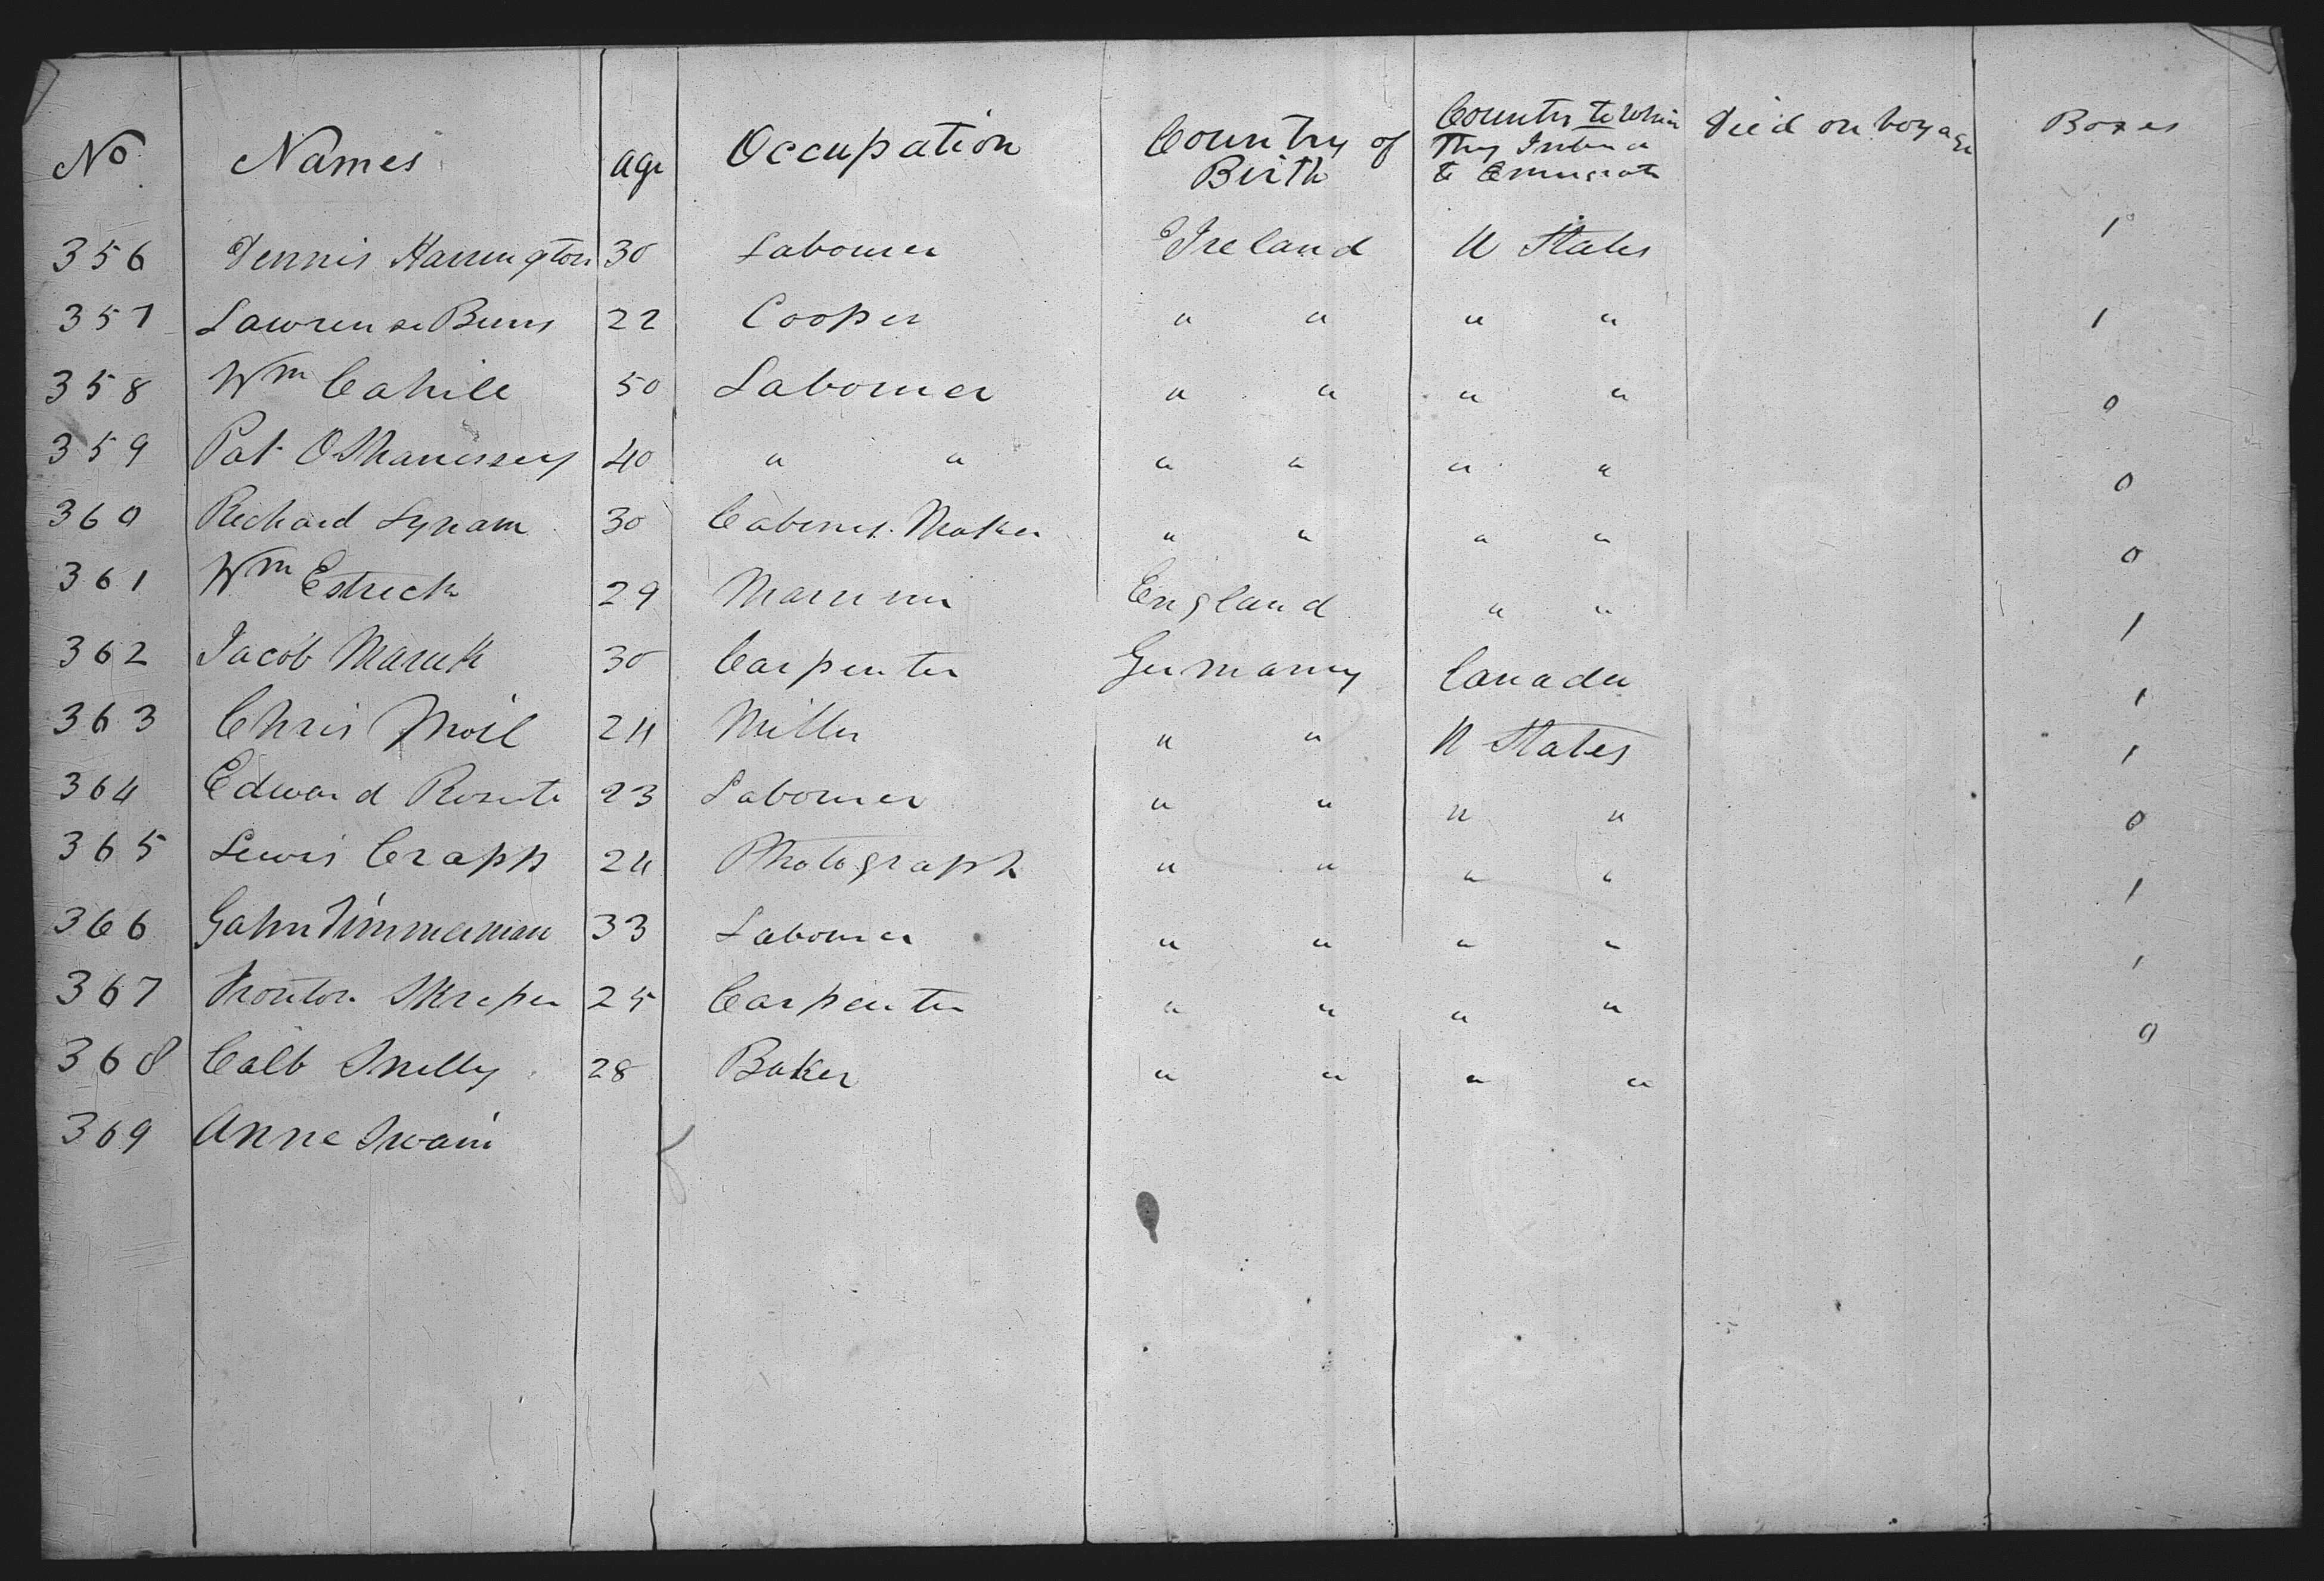 No Names age Occupation Country of Birth Country to Which They Intend to Emmigrate Died on voyage Boxes
356 Dennis Harrington 30 Labourer Ireland U States 1
357 Lawrense Burns 22 Cooper " " " " 1
358 Wm Cahill 50 Labourer " " " " 0
359 Pat O Shanessey 40 " " " " " " 0
360 Richard Lynam 30 Cabinet Maker " " " " 0
361 Wm Estrick 29 Mariner England " " 1
362 Jacob 30 Carpenter Germany Canada 1
363 Chris Moil 24 Miller " " U States 1
364 Edward 23 Labourer " " " " 0
365 Lewis Crapp 24 Photograph " " " " 1
366 Gahn Timmerman 33 Labourer " " " " 1
367 25 Carpenter " " " " 0
368 Calb 28 Baker " " " "
369 Anne Swain